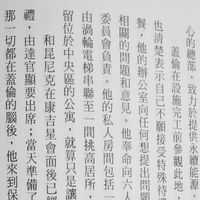 心的總部，致力於提供永續能源。
蓋倫在設施完工前參觀此地，
也清楚表示自己不願接受特殊待
餐，他的辦公室向任何想提出問題
相關的問題和意見。他奉命向六人
委員會負責。他的私人房間包括一
由渦輪電梯串聯至一間挑高居所，
留位於中央區的公寓，就算只是讓
和昆尼克在康吉星會面後已經
禮，由達官顯要出席；當天準備了
那一切都在蓋倫的腦後，他來到保